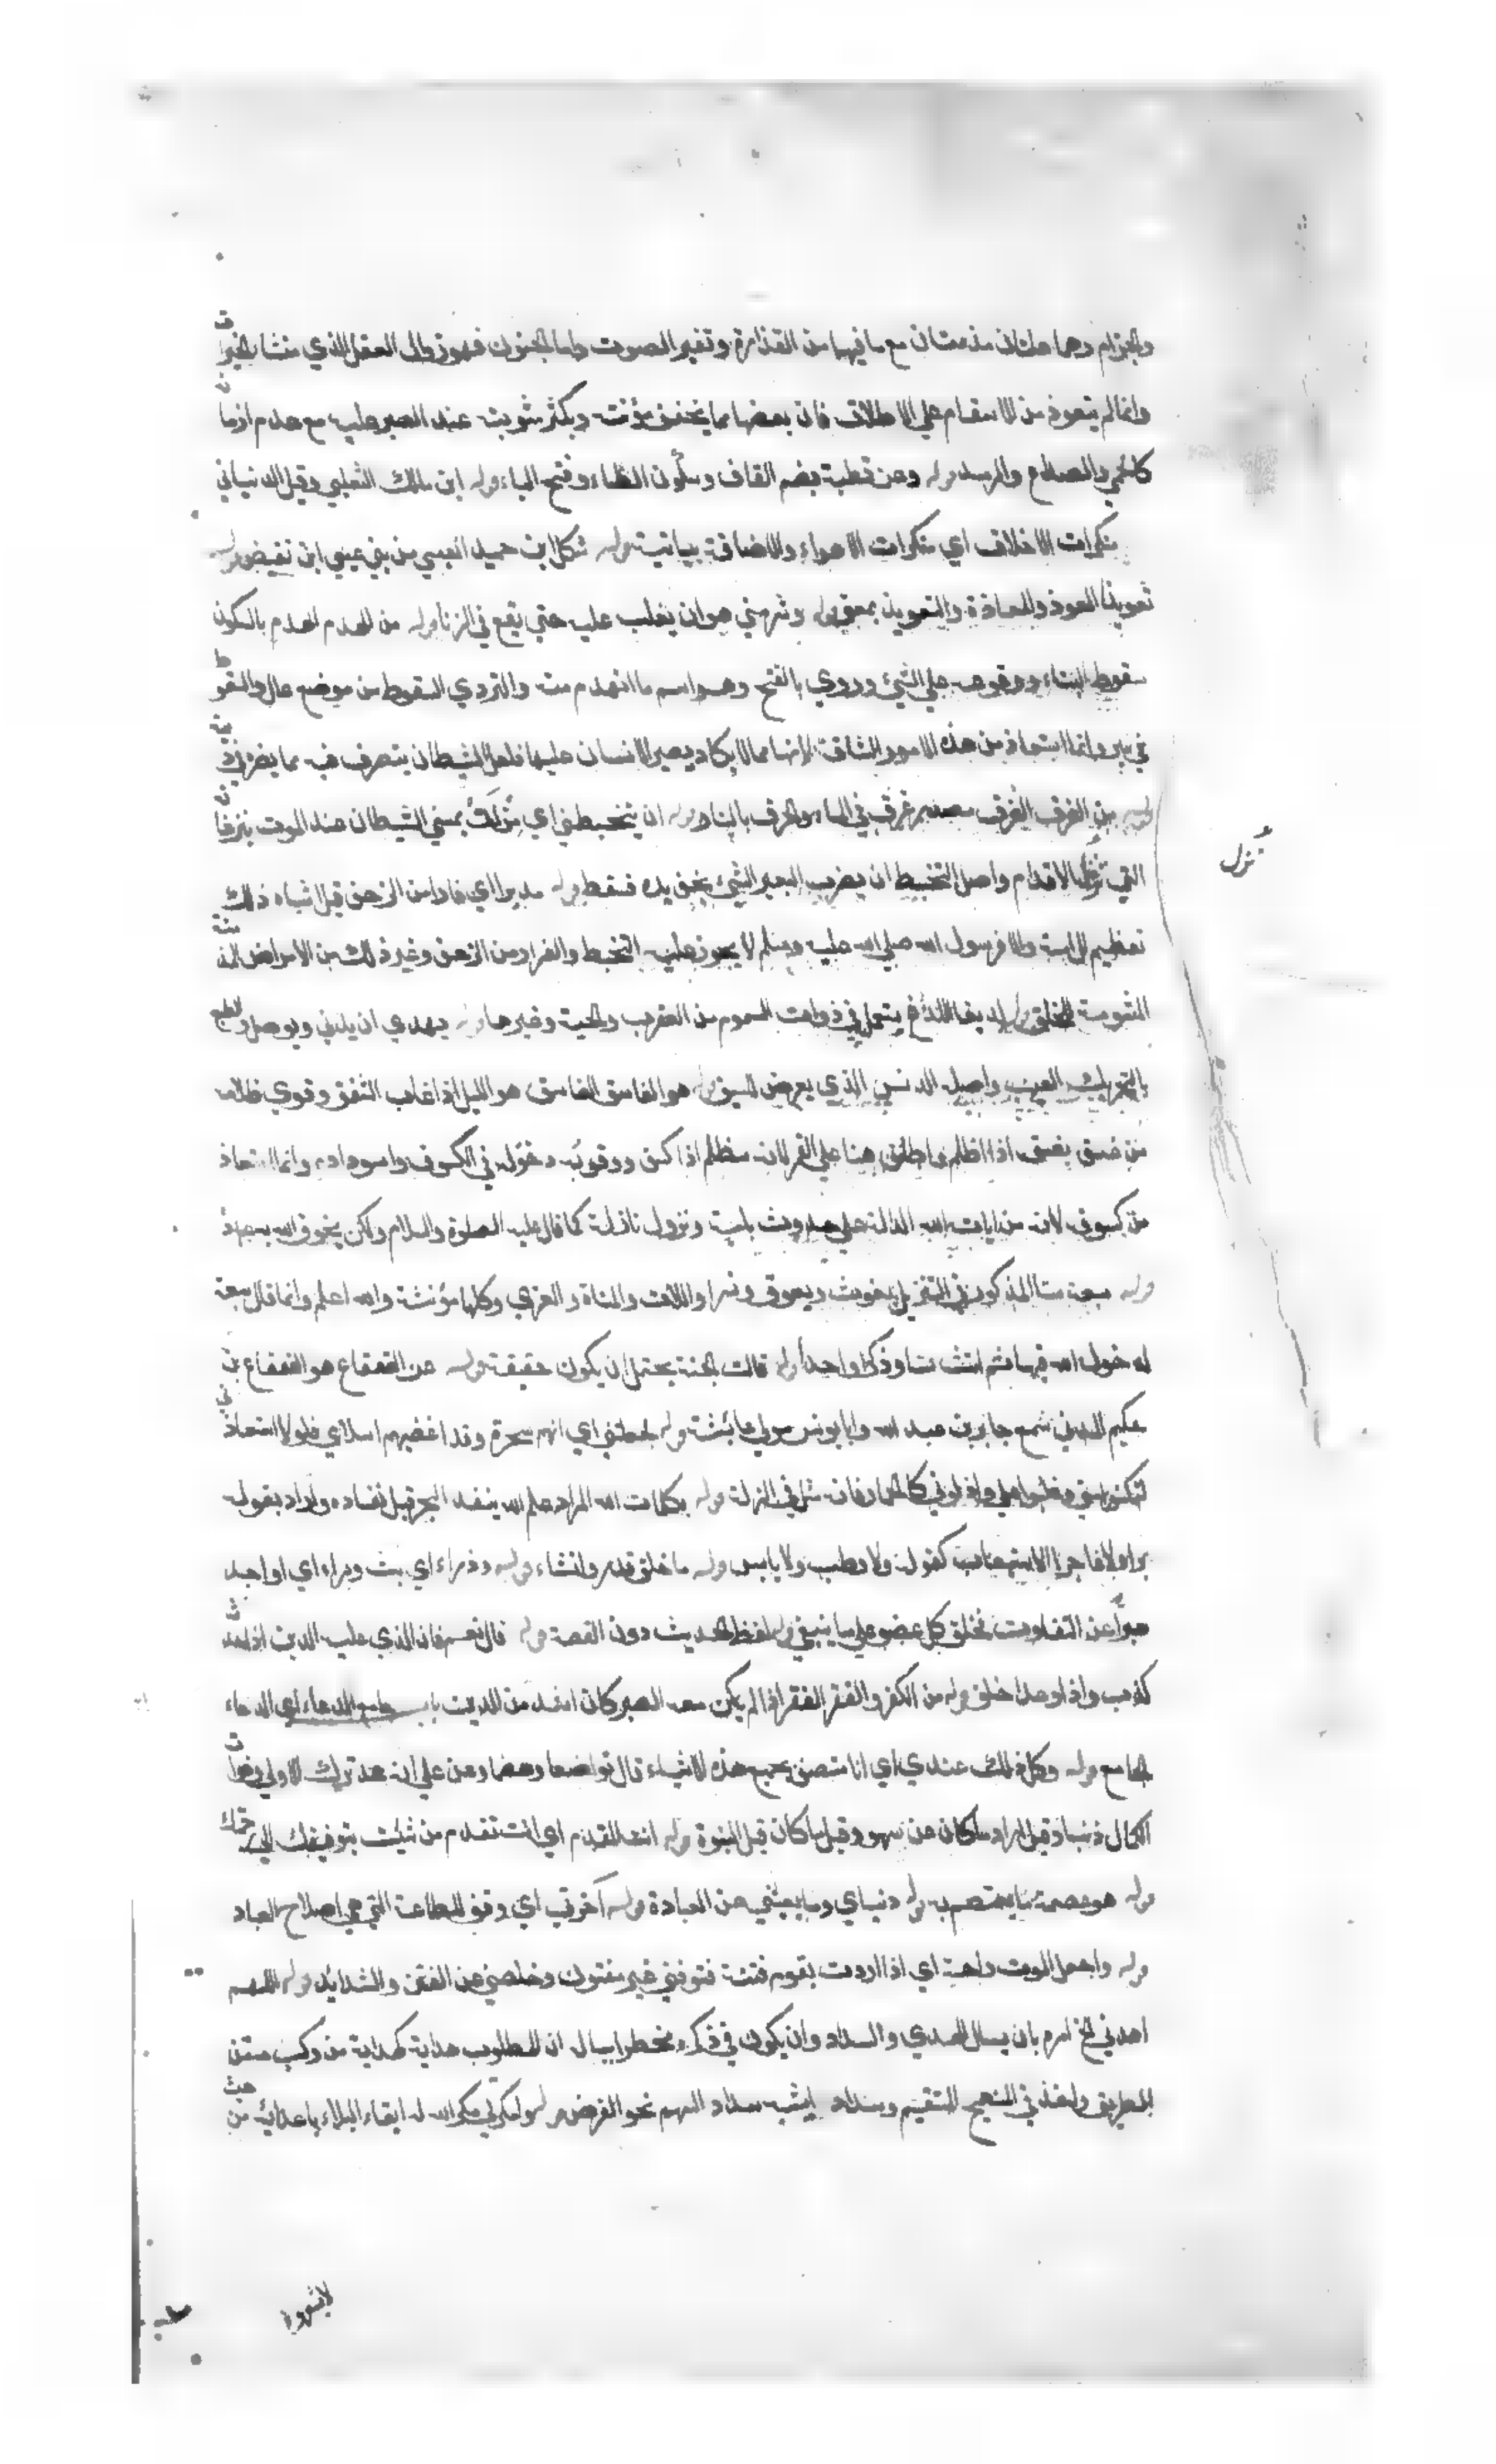 والجذام وهما علتان مزمنتان مع ما فيهما من القذارة وتغير الصوت واما الجنون فهو زوال العقل الذي منشا الخيرات
وانما لم يتعوذ من الاسقام علي الاطلاق فان بعضها مما يخفف مؤنته ويكثر مثوبته عند الصبر عليه مع عدم ازمان
كالحمي والصداع والرمد وله وعن قطبة بضم القاف وسكون الطاء وفتح الباء وله ابن مالك الثعلبي وقيل الذبياني
منكرات الاخلاق اي منكرات الاهواء والاضافة بيانية وله شكل ابن حميد العبسي من بني عبس ابن بغيض وله
تعويذا العوذ والمعاذة والتعويذ بمعني وله وشر مني هو ان يغلب عليه حتي يقع في الزنا وله من الهدم الهدم بالسكون
سقوط البناء ووقوعه علي الشئ وروي بالفتح وهو اسم ما انهدم منه والتردي السقوط من موضع عال والسقوط
في بير وانما استعاذ من هذه الامور الشاقة لانها مما لا يكاد يصبر الانسان عليها فلعل الشيطان يتصرف فيه مما يضر في دينه
وله من الغرق الغرق مصدر غرق في الماء والحرق بالنار وله ان يتخبطني اي يمسني الشيطان عند الموت بنزغاته
نُزل
التي تزل الاقدام واصل التخبط ان يضرب البعير الشئ بخف يده فسقط وله مدبرا اي فارا من الزحف قيل اشباه ذلك
تعظيم للامة والا فرسول الله صلي الله عليه وسلم لا يجوز عليه التخبط والفرار من الزحف وغير ذلك من الامراض
للخلق وله لديغا اللدغ يستعمل في ذوات السموم من العقرب والحية وغيرها وله يهدي ان يدني ويوصل والطبع
بالتحريك العيب واصله الدنس الذي يعرض للسيف وله هو الغاسق الغاسق هو الليل اذا غاب الشفق وقوي ظلامه
من غسق يغسق اذا اظلم واطلق هنا علي القمر لانه مظلم اذا كسف ووقوبه دخوله في الكسوف واسوداده وانما استعاذ
من كسوفه لانه من ايات الله الدالة علي حدوث بلية ونزول نازلة كما قال عليه الصلوة والسلام ولكن يخوف الله به عباده
وله سبعة ستا المذكور في التنزيل يغوث ويعوق ونسرا واللات والمناة والعزي وكلها مؤنثة والله اعلم وانما قال سبعة
له خول الله فيها ثم انث ستا وذكر واحدا وله قالت الجنة يحتمل ان يكون حقيقة وله عن القعقاع هو القعقاع بن
حكيم المدني سمع جابر بن عبد الله وابا يونس مولي عائشة وله لجعلتني اي انهم سحرة وقد اغضبهم اسلامي فلولا استعاذتي
لتمكنوا مني وغلبوا علي واذلوني كالحمار فانه مثل في الذلة وله بكلمات الله المراد علم الله ينفد البحر قبل نفاده واراد بقوله
بر ولا فاجر الاستيعاب كقوله ولا رطب ولا يابس وله ما خلق قدر وانشاء وله وذراء اي بث وبراء اي اوجد
مبرأ عن التفاوت فخلق كل عضو علي ما ينبغي وله لفظ الحديث دون القصة وله قال نعم فان الذي عليه الدين اذا حدث
كذب واذا وعد اخلف وله من الكفر والفقر الفقر اذا لم يكن معه الصبر كان اشد من الدين باب جامع الدعاء اي الدعاء
الجامع وله وكل ذلك عندي اي انا متصف بجميع هذه الاشياء قال تواضعا وهضما وعن علي انه عد ترك الاولي وفوات
الكمال ذنبا وقيل اراد ما كان عن سهو وقيل ما كان قبل النبوة وله انت المقدم اي انت تقدم من شئت بتوفيقك الي رحمتك
وله هو عصمة ما يعتصم به وله دنياي وما يعينني عن العبادة وله آخرتي اي وفق للطاعة التي هي اصلاح المعاد
وله واجعل الموت راحة اي اذا اردت بقوم فتنة فتوفني غير مفتون وخلصني عن الفتن والشدايد وله اللهم
اهدني الخ امره بان يسال الهدي والسداد وان يكون في ذكره مخطرا ببال ان المطلوب هداية كهداية من ركب متن
الطريق واخذ في المنهج المستقيم وسداد يشبه سداد السهم نحو الغرض وله وامكر لي مكر الله له ايقاع البلاء باعدائه من حيث
لا يشعروا